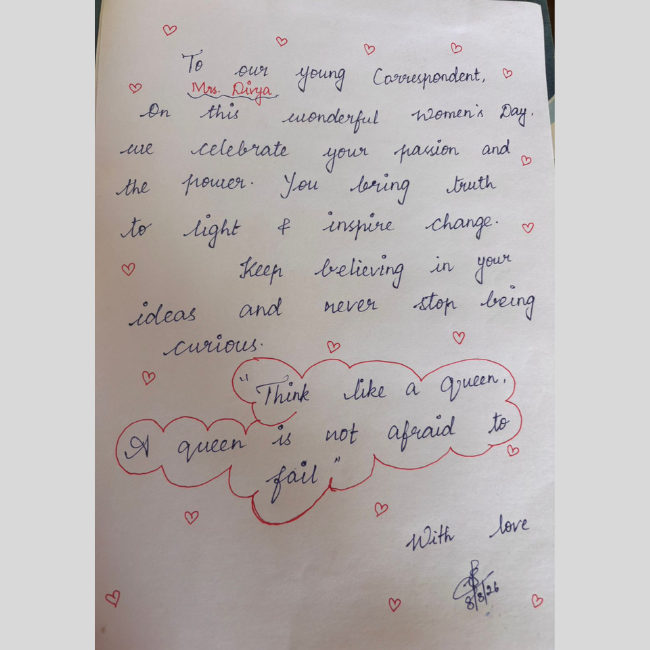 To our young Correspondent,
Mrs. Divya
On this wonderful Women's Day.
we celebrate your passion and
the power. You bring truth
to light & inspire change.
Keep believing in your
ideas and never stop being
curious.
"Think like a queen.
A queen is not afraid to
fail"
With love
8/3/26